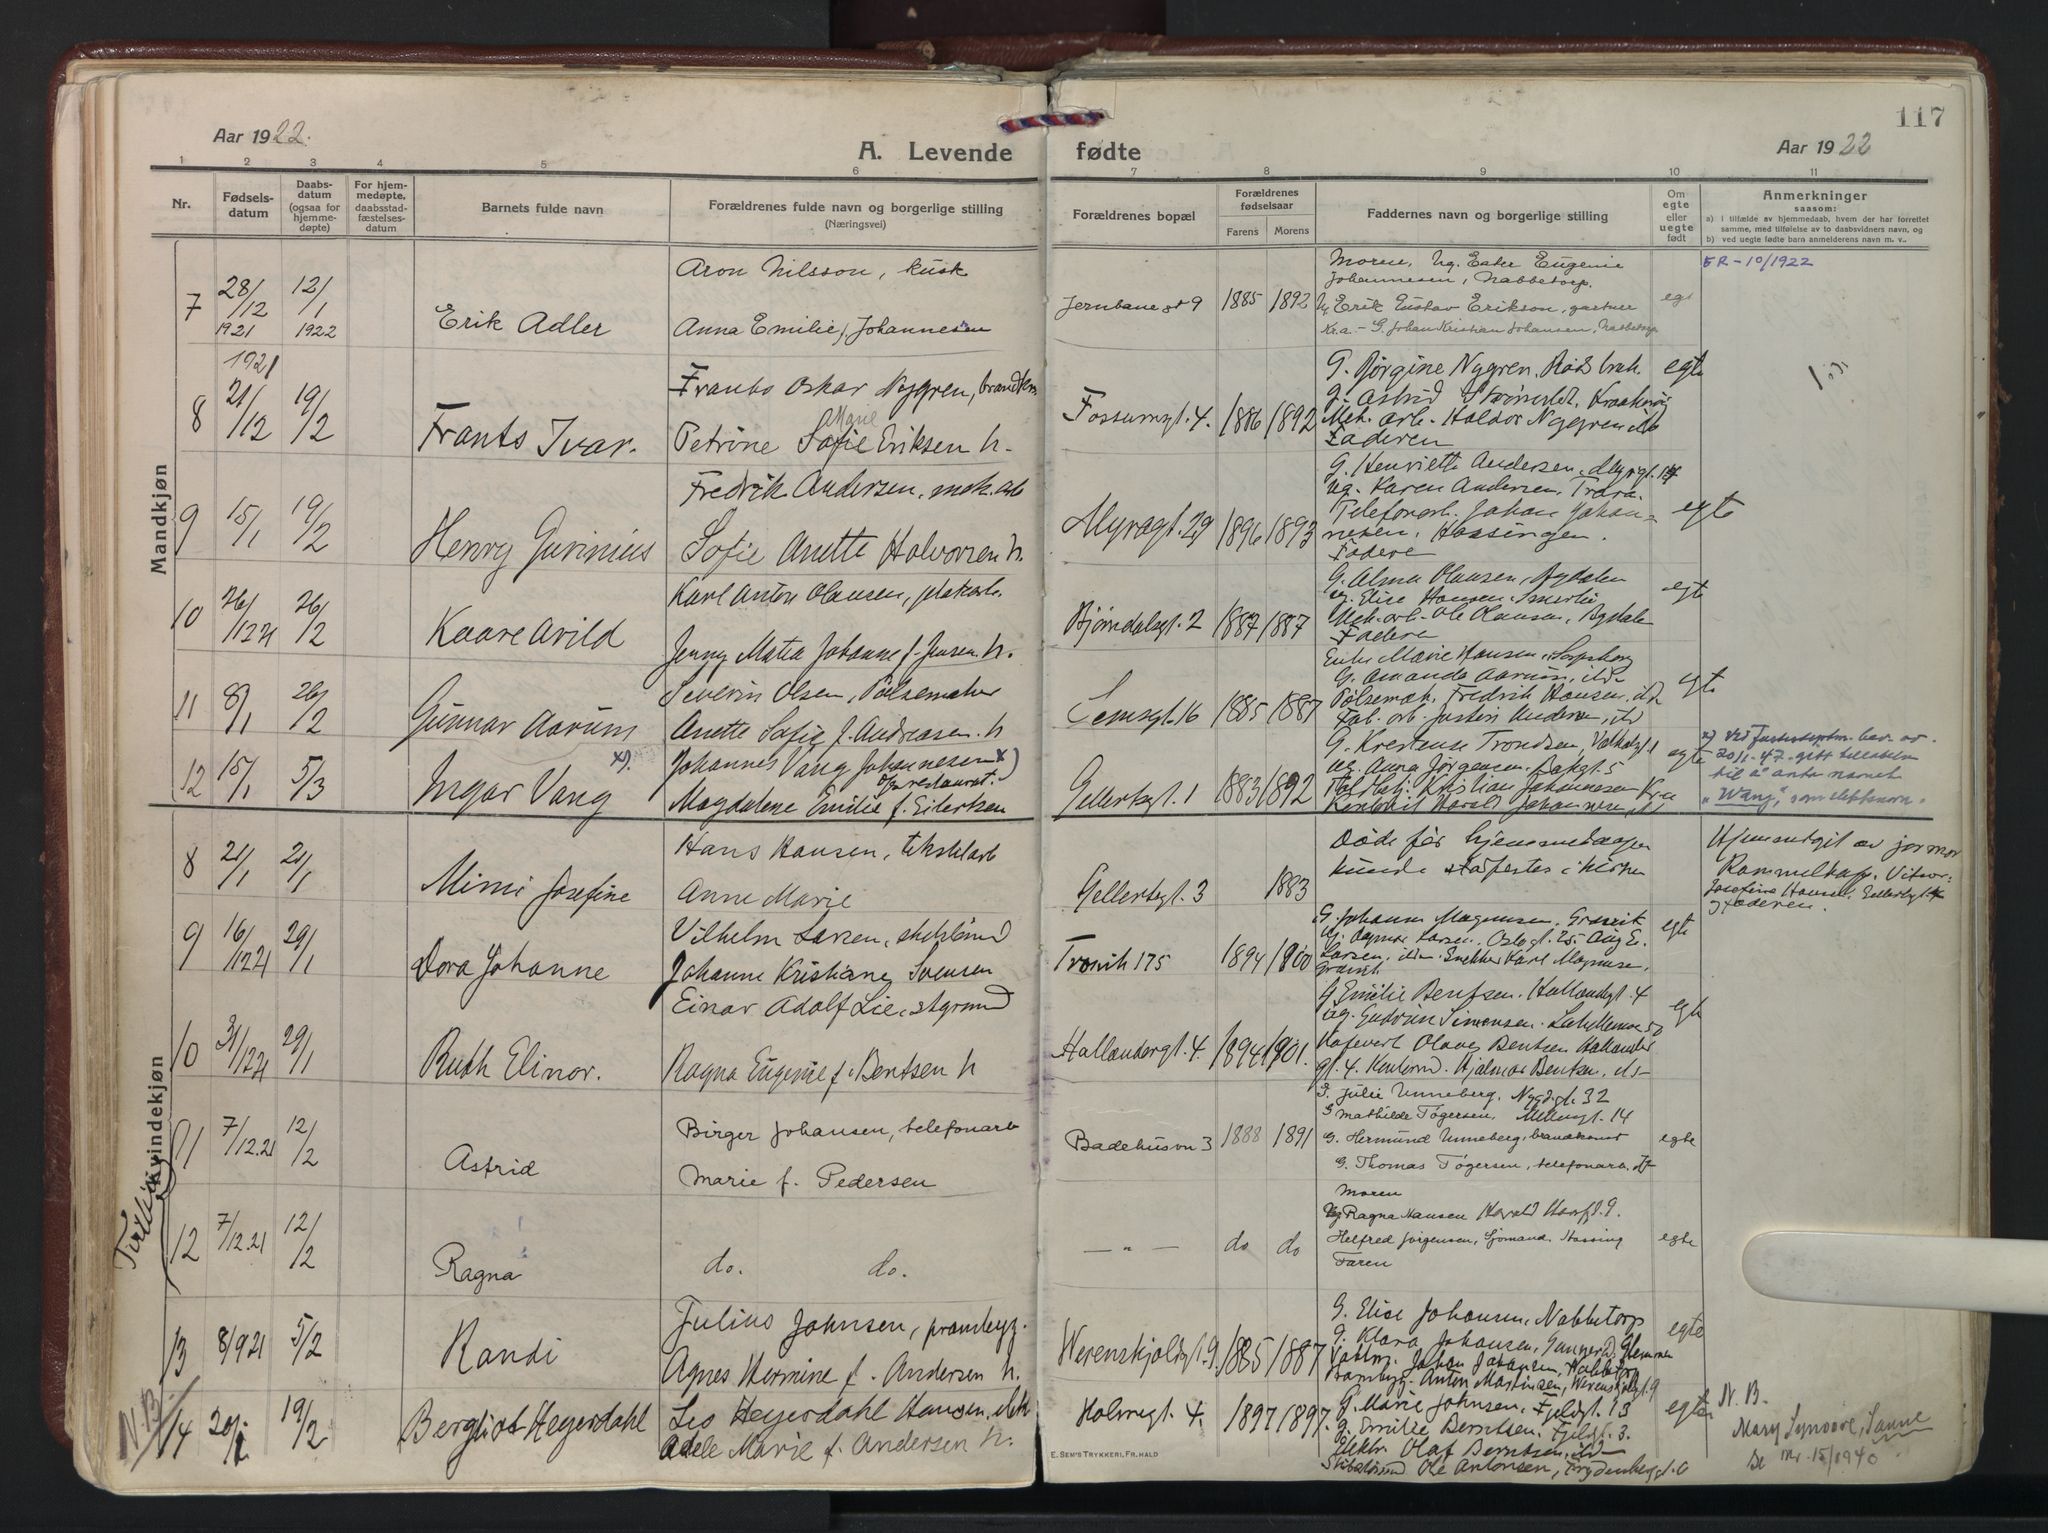 117
Aar 1922.
A. Levende fødte
Aar 1922
1 2 3 4 5 6 7 8 9 10 11
Nr.
Fødsels-
datum
Daabs-
datum
(ogsaa for
hjemme-
døpte)
For hjem-
medøpte,
daabsstad-
fæstelses-
datum
Barnets fulde navn
Forældrenes fulde navn og borgerlige stilling
(Næringsvei)
Forældrenes bopæl
Forældrenes
fødselsaar
Farens Morens
Faddernes navn og borgerlige stilling
Om
egte
eller
uegte
født
Anmerkninger
saasom:
a) i tilfælde av hjemmedaab, hvem der har forrettet
samme, med tilføielse av to daabsvidners navn, og
b) ved uegte fødte barn anmelderens navn m. v..
Mandkjøn
7 28/12 1921 12/1 1922 Erik Adler
Aron Nilsson, kusk
Anna Emilie f. Johannesen
Jernbanegt 9 1885 1892
Moren, Ug. Ester Eugenie
Johannesen, Nabbetorp.
Ug Erik Gustav Erikson, gartner
Kr.a. - G. Johan Kristian Johansen, Nabbetorp
egt
ER-10/1922
8 1921 21/12 19/2 Frants Ivar.
Frants Oskar Nygren, brandkm
Petrine Marie Sofie Eriksen h.
Fossumgt. 4. 1886 1892
G. Jørgine Nygren, Rødsbrak
G. Astrid
Mek. arb. Haldor Nygren
Faderen
egte
9 15/1 19/2 Henry Gurinius
Fredrik Andersen, mek. arb
Sofie Anette Halvorsen h.
Myragt. 29 1896 1893
G. Henriette Andersen, Myragt.
Ug. Karen Andersen, Trara.
Telefonarb. Johan Johan-
nesen, Hassingen.
Fadere
egte
10 26/12 21 26/2 Kaare Arild
Karl Anton Olausen,
Jenny Matea Johanne f. Jensen h.
Bjørndalsgt. 2 1887 1887
G. Alma Olausen, Agdalen
ug. Elise Hansen, Smertu
Mek. arb. Ole Olausen, Agdalen
Fadere
egte
11 8/1 26/2 Gunnar Aarum
Severin Olsen, Pølsemaker
Anette Sofie f. Andreasen h
Lemsgt. 16 1885 1887
Enke Marie Hansen, Sarpsborg
G. Amanda Aarum,
Pølsemak. Fredrik Hansen,
Fab. arb. Justin Andersen,
egte
12 15/1 5/3 Ingar Vang x)
Johannes Vang Johannesen x)
restaurat.
Magdalene Emilie f. Eilertsen
Gellertsgt. 1 1883 1892
G. Krestense Trondsen,
ug. Anna Jørgensen. Bakgt. 5
Kristian Johannessen Kra
Kontorist Harald Johannesen,
egte
x) Ved Justisdeptm. bev. av
20/1. 47. gitt tilladelse
til å anta navnet
"Wang", som slektsnavn.
Kvindekjøn
8 21/1 21/1 Mimi Josefine
Hans Hansen, tekstilarb
Anne Marie
Gellertsgt. 3 1883
Døde før hjemmedaapen
kunde stadfestes i kirken
Hjemmedøpt av jormor
Rammeltapp. Vitner:
Josefine Hansen, Gellertsgt.
og Faderen.
9 16/12 21 29/1 Dora Johanne
Vilhelm Larsen,
Johanne Kristiane Svensen
Trosvik 175 1894 1900
G. Johanne Magnussen. Gravik
Ug. Dagmar Larsen, Oslogt. 25. Aug E.
Larsen, Snekker Karl Magnusen,
egte
10 31/12 21 29/1 Ruth Elinor.
Einar Adolf Lie,
Ragna Eugenie f. Bentsen h
Hallandergt. 4. 1894 1901.
G Emilie Bentsen. Hallandsgt. 4
ug. Gudrun Simonsen.
Olaves Bentsen Hallander
gt. 4. Hjalmar Bentsen,
egte
Tvillinger
11 7/12.21 12/2 Astrid
Birger Johansen, telefonarb
Marie f. Pedersen
Badehusvn 3 1888 1891
G. Julie Unneberg, Nygdgt. 32
G Mathilde Tøgersen, Mellemgt. 14
G. Hermund Unneberg, brandkonst
G. Thomas Tøgersen, telefonarb.
egte
12 7/12.21 12/2 Ragna
do. do.
— " — do do
Moren
Ug Ragna Hansen Harald Haarfgt. 9.
Helfred Jørgensen, Sjømand, Hassing
Faren
egte
13 8/9 21 5/2 Randi
Julius Johnsen, prambygg.
Agnes Hermine f. Andersen h.
Werenskjoldgt. 9. 1885 1887
G. Elise Johansen, Nabbetorp
G. Klara Johansen, Glemmen
Johan Johansen, Nabbetorp
Prambyg. Anton Martinsen, Werenskjoldgt. 9
egte
N.B.
14 20/1 19/2 Bergliot Heyerdahl
Leo Heyerdahl Hansen, elek
Adele Marie f. Andersen h.
Holmegt. 4. 1897 1897.
G. Marie Johnsen, Fjeldgt. 13
G. Emilie Berntsen. Fjelgt. 3.
Elektr. Olaf Berntsen,
Ole Antonsen, Frydenberggt. 6
egte
N.B.
Mary Synnøve, Sanne
Se nr. 15/1940
E. SEM'S TRYKKERI, FR.HALD